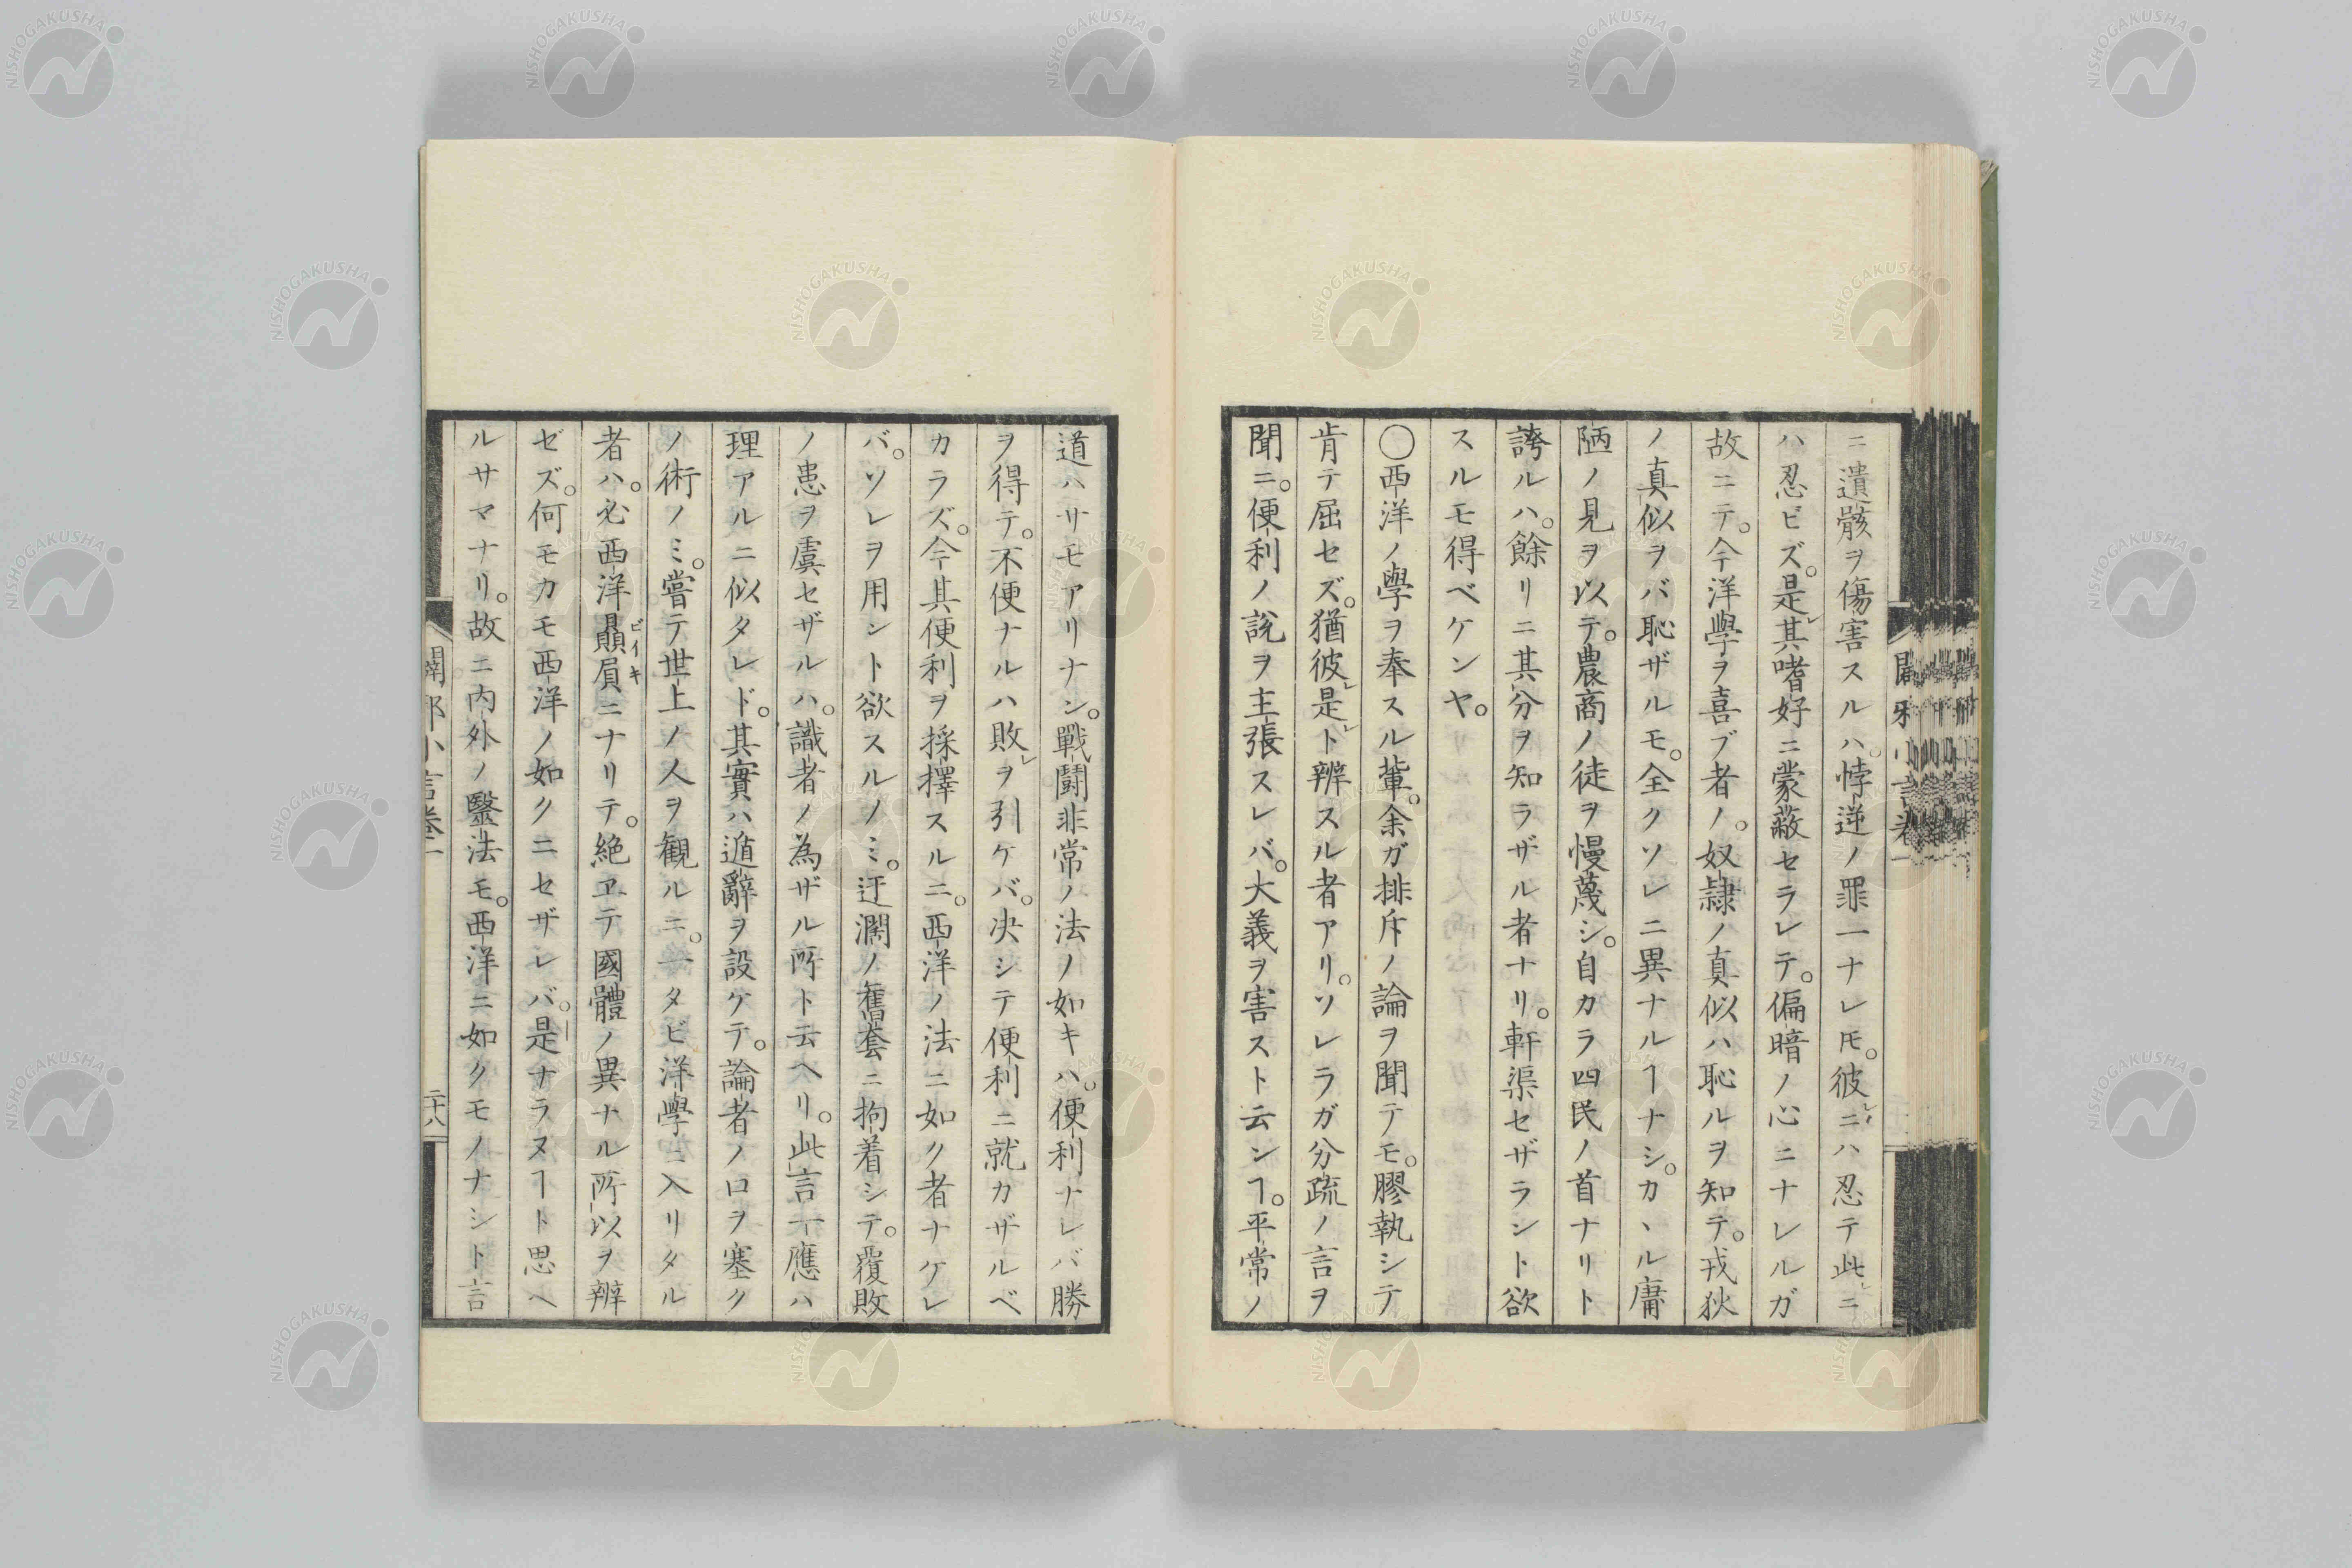 ニ遺骸ヲ傷害スルハ。悖逆ノ罪一ナレ𪜈。彼レニハ忍テ此レニ
ハ忍ビズ。是レ其嗜好ニ蒙蔽セラレテ。偏暗ノ心ニナレルガ
故ニテ。今洋學ヲ喜ブ者ノ。奴隷ノ真似ハ恥ルヲ知テ。戎狄
ノ真似ヲバ恥ザルモ。全クソレニ異ナルヿナシ。カヽル庸
陋ノ見ヲ以テ。農商ノ徒ヲ慢蔑シ。自カラ四民ノ首ナリト
誇ルハ。餘リニ其分ヲ知ラザル者ナリ。軒渠セザラント欲
スルモ得ベケンヤ。
○西洋ノ學ヲ奉スル輩。余ガ排斥ノ論ヲ聞テモ。膠執シテ
肯テ屈セズ。猶彼レ是レト辨スル者アリ。ソレラガ分疏ノ言ヲ
聞ニ。便利ノ說ヲ主張スレバ。大義ヲ害スト云ンヿ。平常ノ
道ハサモアリナン。戰鬪非常ノ法ノ如キハ。便利ナレバ勝
ヲ得テ。不便ナルハ敗レヲ引ケバ。決シテ便利ニ就カザルベ
カラズ。今其便利ヲ採擇スルニ。西洋ノ法ニ如ク者ナケレ
バ。ソレヲ用ント欲スルノミ。迂濶ノ舊套ニ拘着シテ。覆敗
ノ患ヲ虞セザルハ。識者ノ為ザル所ト云ヘリ。此言一應ハ
理アルニ似タレド。其實ハ遁辭ヲ設ケテ。論者ノ口ヲ塞ク
ノ術ノミ。嘗テ世上ノ人ヲ観ルニ。一タビ洋學ニ入リタル
者ハ。必西洋贔屓ビイキニナリテ。絶ヱテ國體ノ異ナル所以ヲ辨
ゼズ。何モカモ西洋ノ如クニセザレバ。是ナラヌヿト思ヘ
ルサマナリ。故ニ内外ノ醫法モ。西洋ニ如クモノナシト言
闢邪小言卷一
二十八